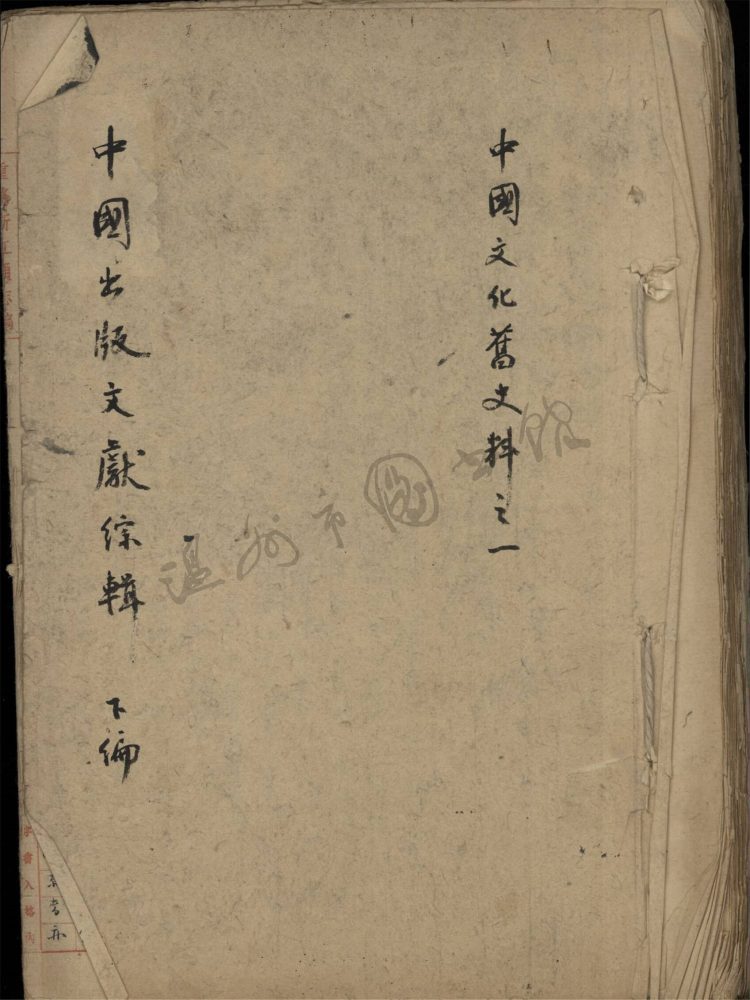 中國文化舊史料之一
中國出版文獻綜輯 下編
温州市圖书館